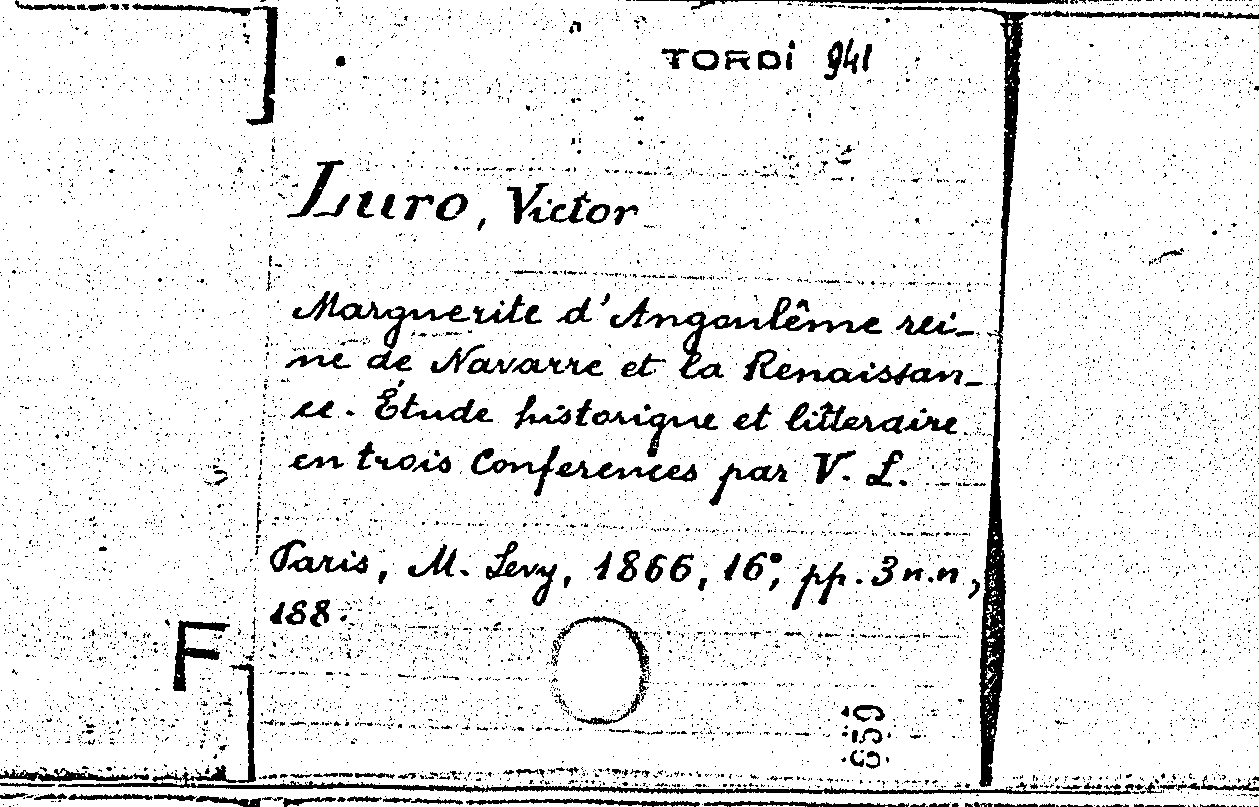 TORDI 941
Luro, Victor
Marguerite d'Angoulême rei-
ne de Navarre et la Renaissan-
ce. Étude historique et litteraire
en trois Conferences par V. L.
Paris, M. Levy, 1866, 16°, pp. 3 n.n,
188.
F
659